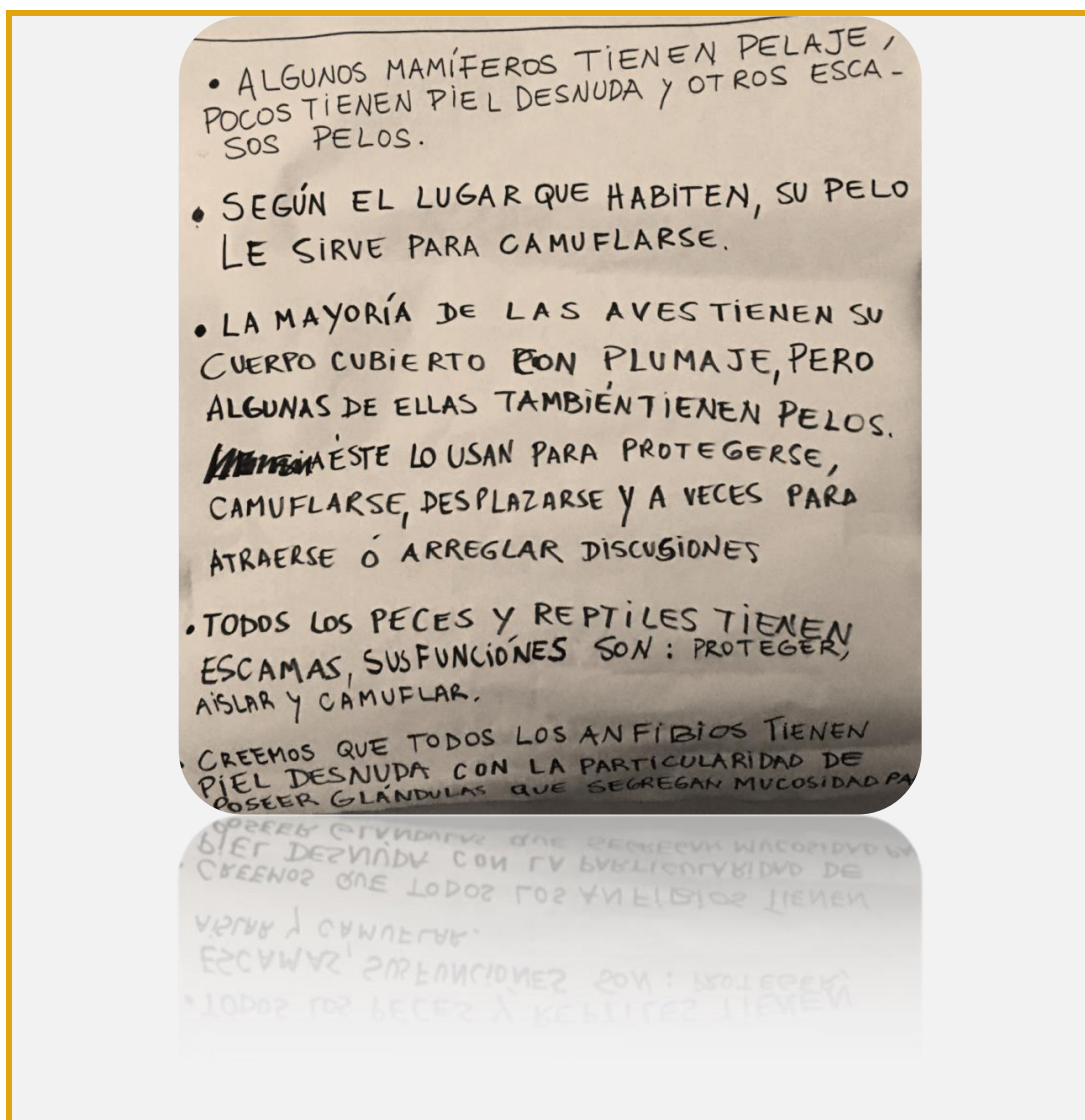 • ALGUNOS MAMÍFEROS TIENEN PELAJE,
POCOS TIENEN PIEL DESNUDA Y OTROS ESCA-
SOS PELOS.
• SEGÚN EL LUGAR QUE HABITEN, SU PELO
LE SIRVE PARA CAMUFLARSE.
• LA MAYORÍA DE LAS AVES TIENEN SU
CUERPO CUBIERTO CON PLUMAJE, PERO
ALGUNAS DE ELLAS TAMBIÉN TIENEN PELOS.
ÉSTE LO USAN PARA PROTEGERSE,
CAMUFLARSE, DESPLAZARSE Y A VECES PARA
ATRAERSE Ó ARREGLAR DISCUSIONES
• TODOS LOS PECES Y REPTILES TIENEN
ESCAMAS, SUS FUNCIÓNES SON: PROTEGER,
AISLAR Y CAMUFLAR.
• CREEMOS QUE TODOS LOS ANFIBIOS TIENEN
PIEL DESNUDA CON LA PARTICULARIDAD DE
POSEER GLÁNDULAS QUE SEGREGAN MUCOSIDAD PA